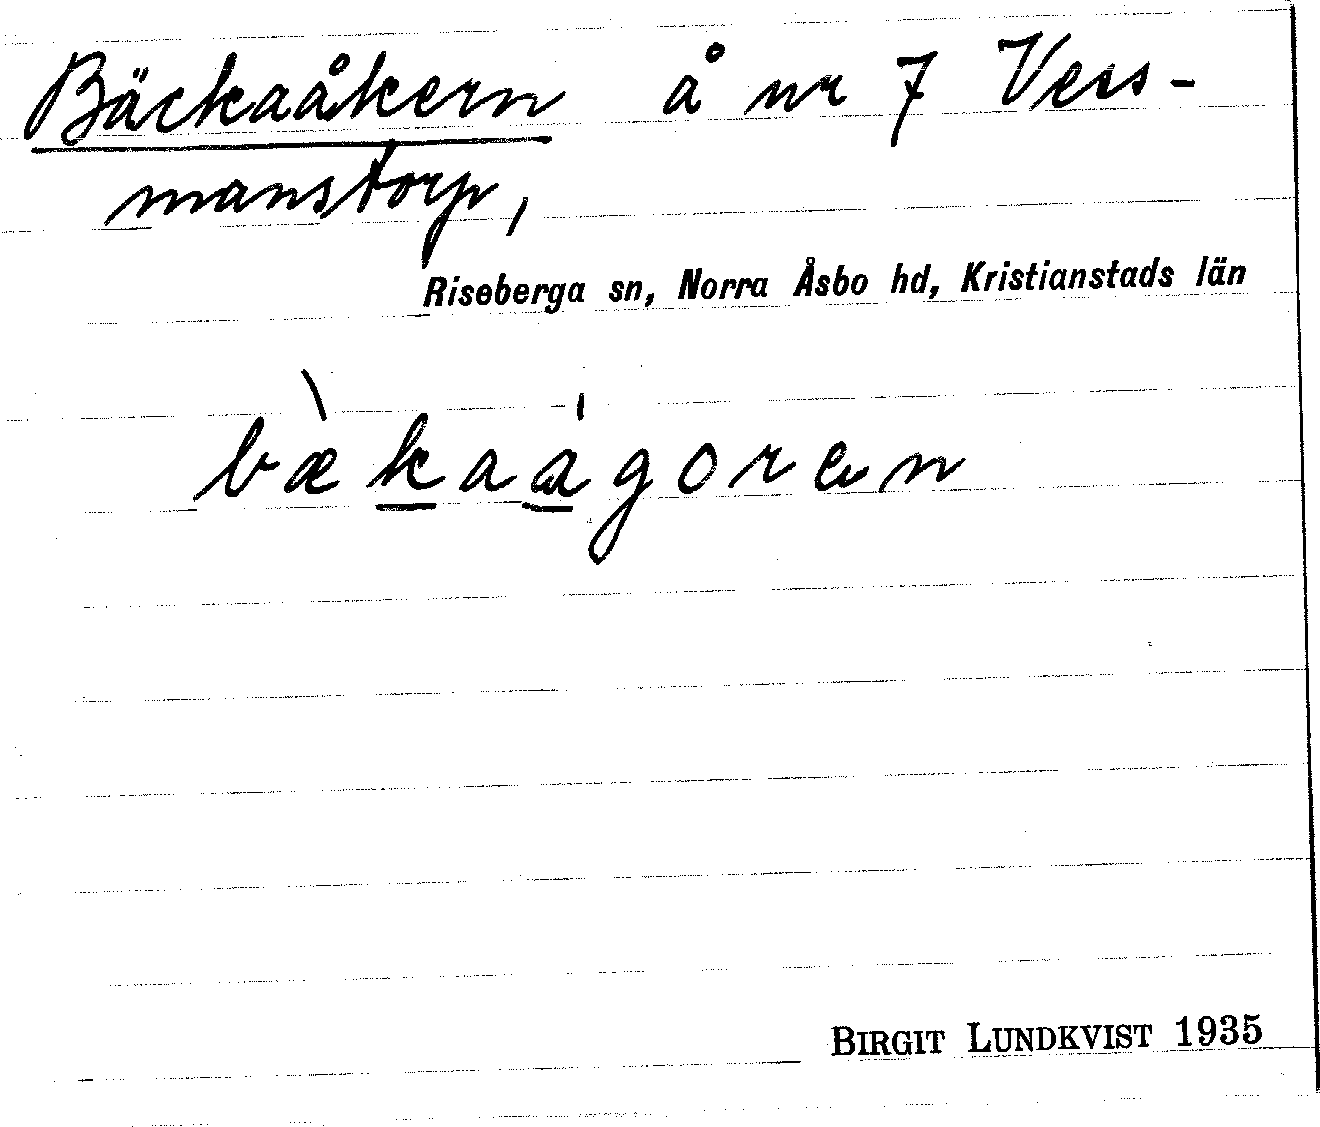 Bäckaåkern å nr 7 Vess-
manstorp,
Riseberga sn, Norra Åsbo hd, Kristianstads län
bækaagoren
BIRGIT LUNDKVIST 1935